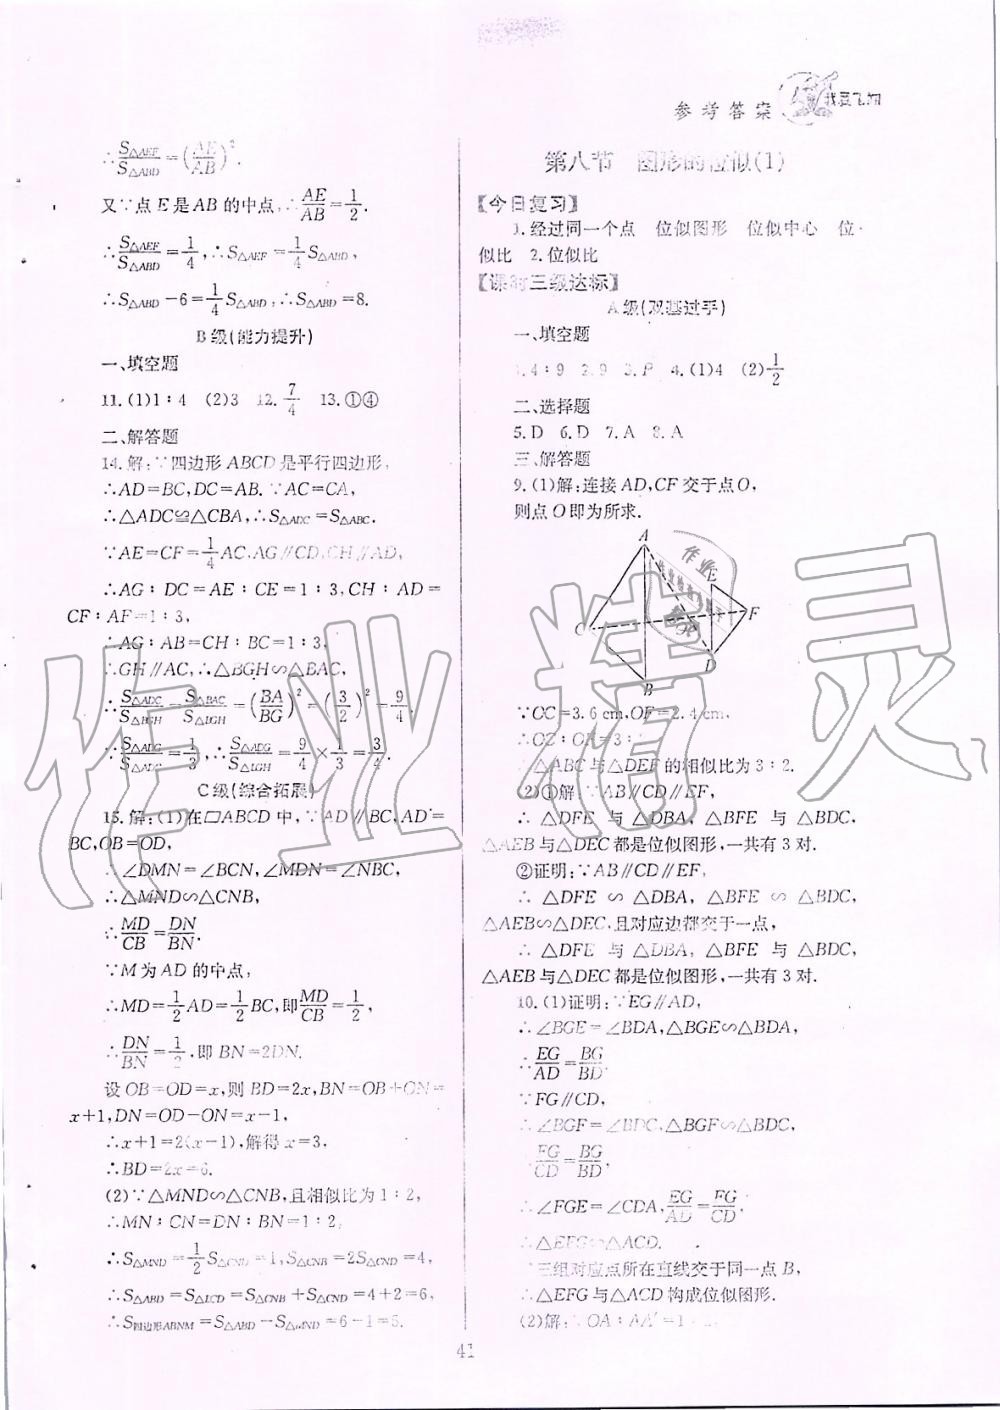 参考答案
∴S△AEF/S△ABD=(AE/AB)².
又∵点E是AB的中点,∴AE/AB=1/2.
∴S△AEF/S△ABD=1/4,∴S△AEF=1/4S△ABD,
∴S△ABD-6=1/4S△ABD,∴S△ABD=8.
B级(能力提升)
一、填空题
11.(1)1∶4 (2)3 12.7/4 13.①④
二、解答题
14.解:∵四边形ABCD是平行四边形,
∴AD=BC,DC=AB.∵AC=CA,
∴△ADC≌△CBA,∴S△ADC=S△ABC.
∵AE=CF=1/4AC,AG∥CD,CH∥AD,
∴AG∶DC=AE∶CE=1∶3,CH∶AD=
CF∶AF=1∶3,
∴AG∶AB=CH∶BC=1∶3,
∴GH∥AC,∴△BGH∽△BAC,
=(BA/BG)²=(3/2)²=9/4.
=1/3,∴ =9/4×1/3=3/4.
C级(综合拓展)
15.解:(1)在□ABCD中,∵AD∥BC,AD=
BC,OB=OD,
∴∠DMN=∠BCN,∠MDN=∠NBC,
∴△MND∽△CNB,
∴MD/CB=DN/BN.
∵M为AD的中点,
∴MD=1/2AD=1/2BC,即MD/CB=1/2,
∴DN/BN=1/2,即BN=2DN.
设OB=OD=x,则BD=2x,BN=OB+ON=
x+1,DN=OD-ON=x-1,
∴x+1=2(x-1),解得x=3,
∴BD=2x=6.
(2)∵△MND∽△CNB,且相似比为1∶2,
∴MN∶CN=DN∶BN=1∶2,
∴S△MND=1/2S△CND=1,S△CNB=2S△CND=4,
∴S△ABD=S△BCD=S△CNB+S△CND=4+2=6,
∴S四边形ABNM=S△ABD-S△MND=6-1=5.
第八节 图形的位似(1)
【今日复习】
1.经过同一个点 位似图形 位似中心 位
似比 2.位似比
【课时三级达标】
A级(双基过手)
一、填空题
1.4∶9 2.9 3.P 4.(1)4 (2)1/2
二、选择题
5.D 6.D 7.A 8.A
三、解答题
9.(1)解:连接AD,CF交于点O,
则点O即为所求.
A
E
C
F
D
B
∵OC=3.6cm,OF=2.4cm,
∴△ABC与△DEF的相似比为3∶2.
(2)①解:∵AB∥CD∥EF,
∴△DFE与△DBA,△BFE与△BDC,
△AEB与△DEC都是位似图形,一共有3对.
②证明:∵AB∥CD∥EF,
∴△DFE∽△DBA,△BFE∽△BDC,
△AEB∽△DEC,且对应边都交于一点,
∴△DFE与△DBA,△BFE与△BDC,
△AEB与△DEC都是位似图形,一共有3对.
10.(1)证明:∵EG∥AD,
∴∠BGE=∠BDA,△BGE∽△BDA,
∴EG/AD=BG/BD.
∵FG∥CD,
∴∠BGF=∠BDC,△BGF∽△BDC,
FG/CD=BG/BD,
∴∠FGE=∠CDA,EG/AD=FG/CD,
∴△EFG∽△ACD.
三组对应点所在直线交于同一点B,
∴△EFG与△ACD构成位似图形.
(2)解:∵OA∶AA′=1∶2,
41
作业精灵